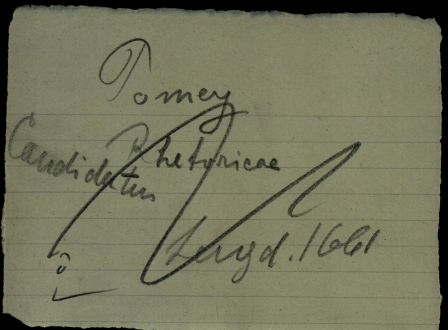 Pomey
Candidatus Rhetoricae
Lugd. 1661